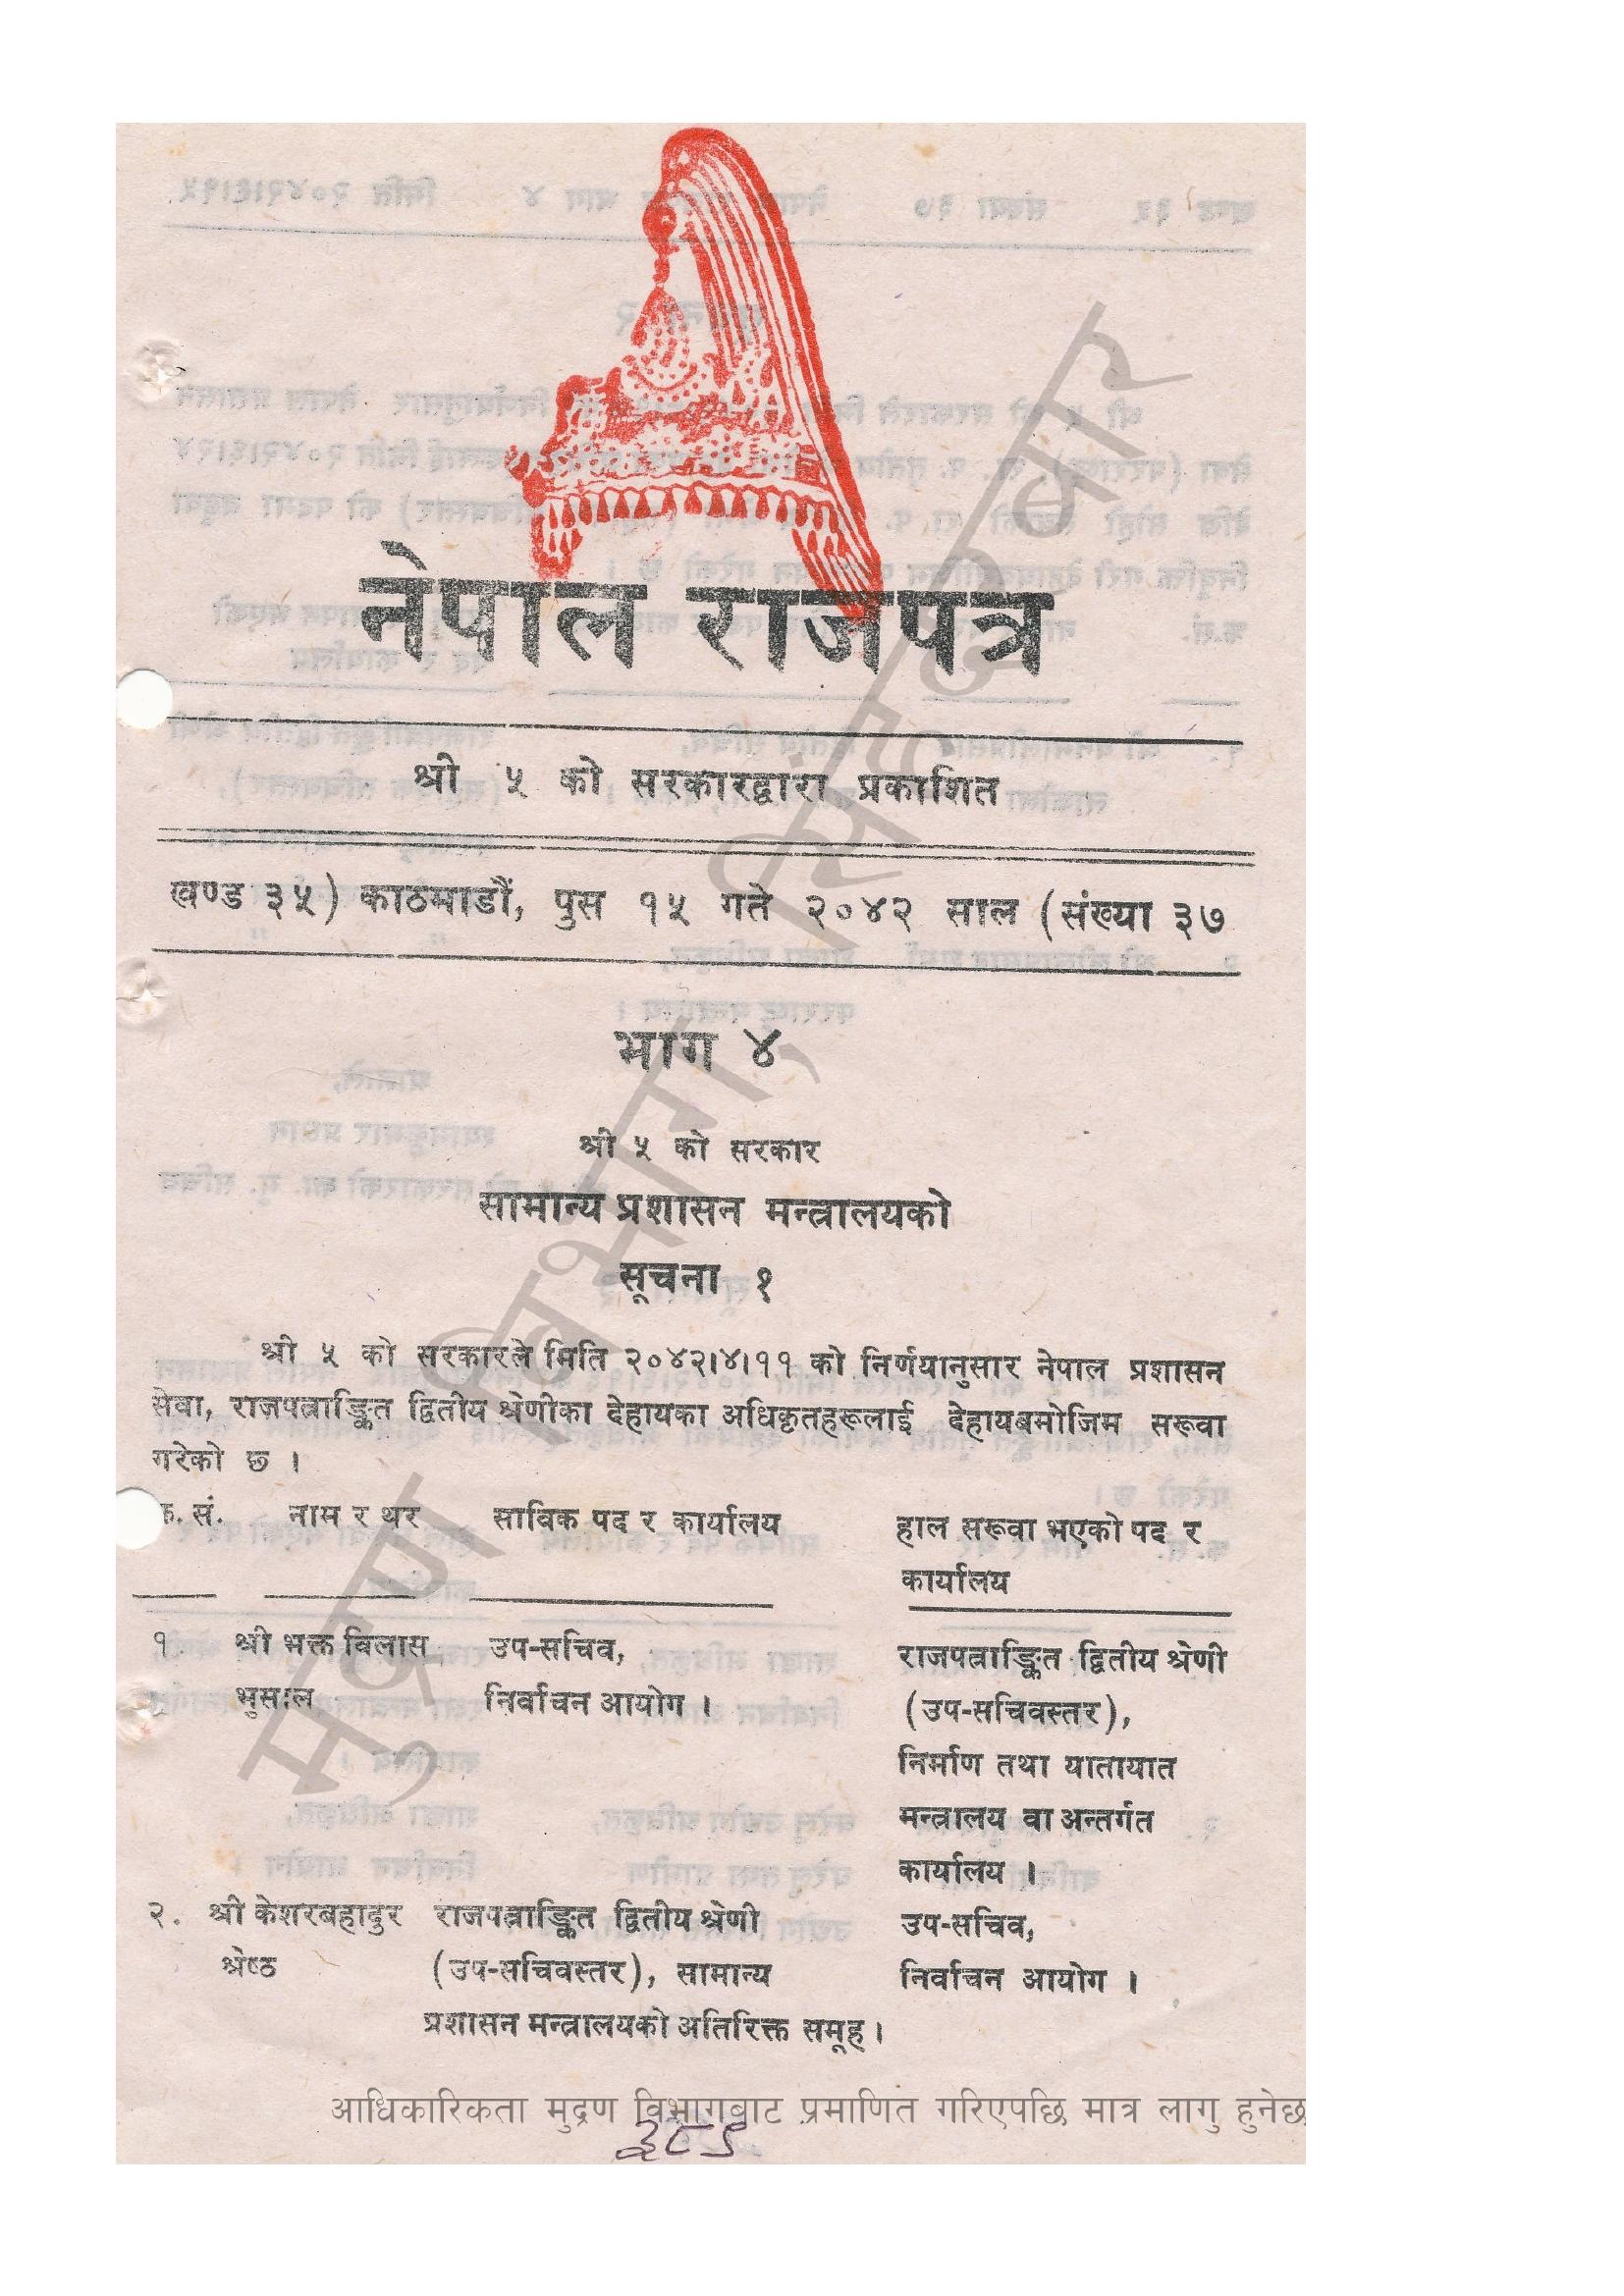 नेपाल राजपत्र
श्री ५ को सरकारद्वारा प्रकाशित
खण्ड ३५) काठमाडौं, पुस १५ गते २०४२ साल (संख्या ३७
भाग ४
श्री ५ को सरकार
सामान्य प्रशासन मन्त्रालयको
सूचना १
श्री ५ को सरकारले मिति २०४२।४।११ को निर्णयानुसार नेपाल प्रशासन
सेवा, राजपत्राङ्कित द्वितीय श्रेणीका देहायका अधिकृतहरूलाई देहायबमोजिम सरूवा
गरेको छ ।
क. सं. नाम र थर साविक पद र कार्यालय हाल सरूवा भएको पद र
कार्यालय
१. श्री भक्त विलास उप-सचिव, राजपत्राङ्कित द्वितीय श्रेणी
भुसाल निर्वाचन आयोग । (उप-सचिवस्तर),
निर्माण तथा यातायात
मन्त्रालय वा अन्तर्गत
कार्यालय ।
२. श्री केशरबहादुर राजपत्राङ्कित द्वितीय श्रेणी उप-सचिव,
श्रेष्ठ (उप-सचिवस्तर), सामान्य निर्वाचन आयोग ।
प्रशासन मन्त्रालयको अतिरिक्त समूह ।
मुद्रण विभाग, सिंहदरबार
आधिकारिकता मुद्रण विभागबाट प्रमाणित गरिएपछि मात्र लागु हुनेछ
३८९